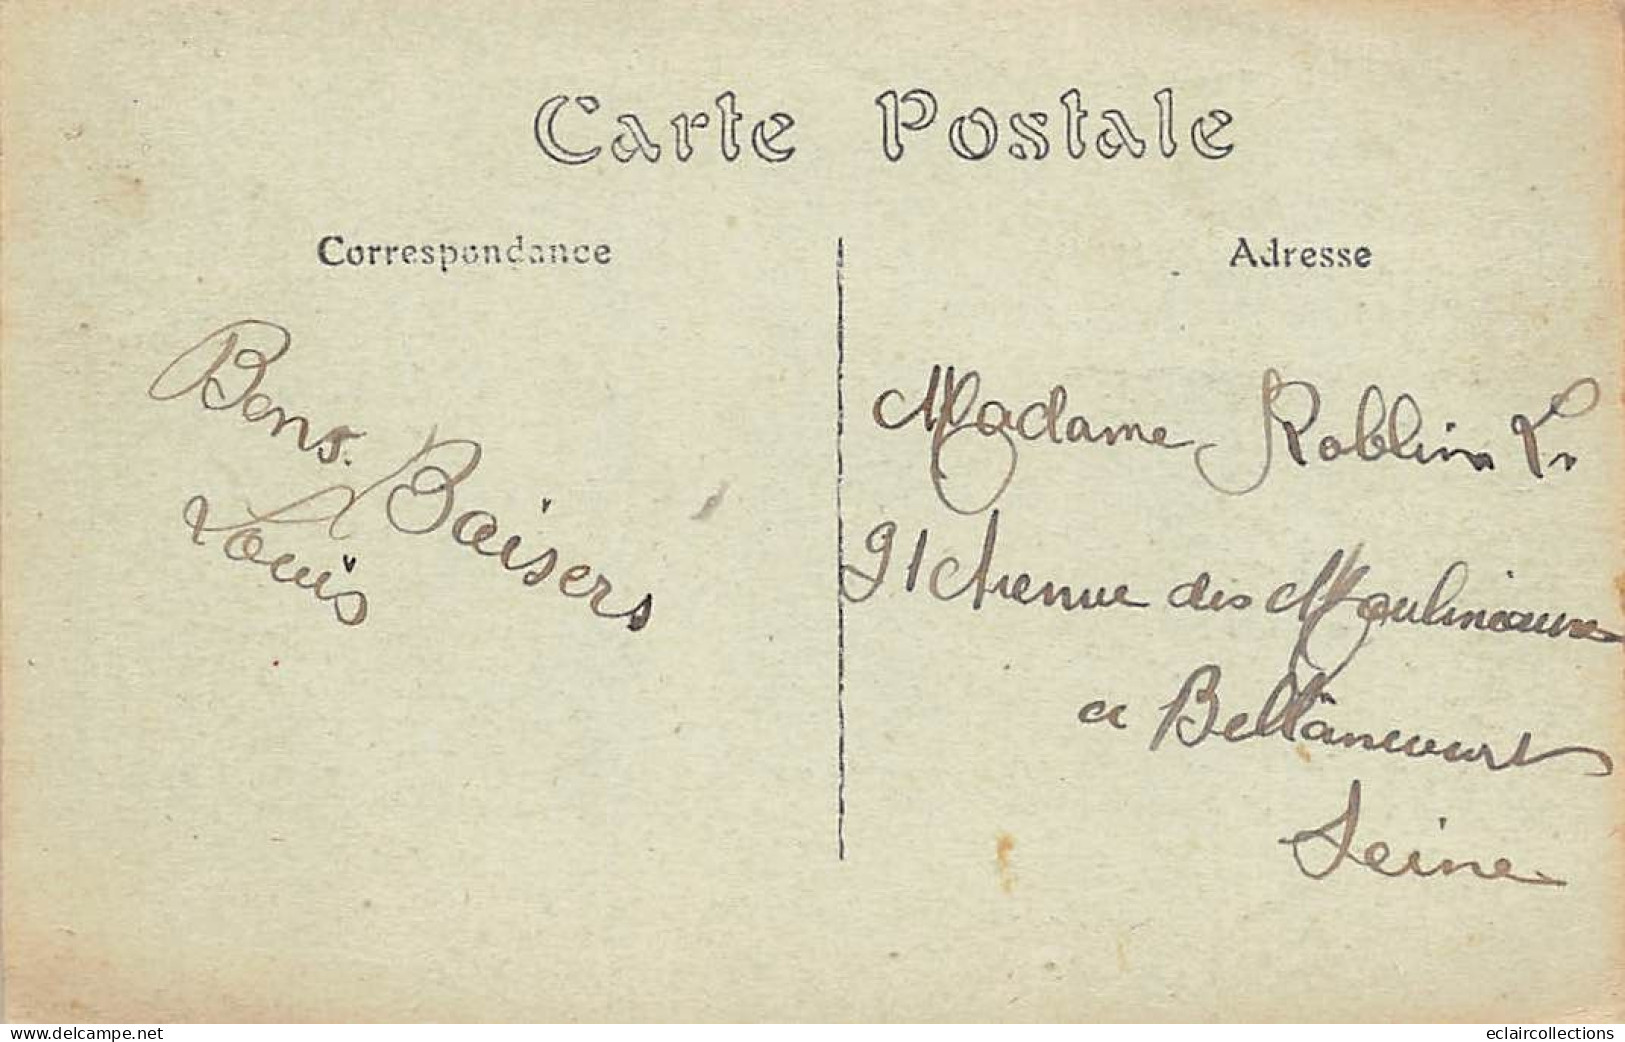 Carte Postale
Correspondance
Bons Baisers
Louis
Adresse
Madame Roblin L.
91 Avenue des Moulineaux
a Bellancourt
Seine
www.delcampe.net
eclaircollections